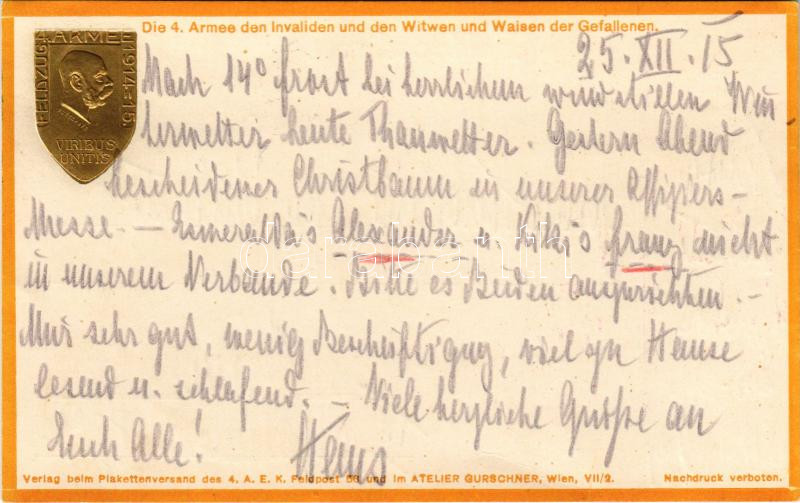 Die 4. Armee den Invaliden und den Witwen und Waisen der Gefallenen.
4. ARMEE
FELDZUG
1914-15.
VIRIBUS
UNITIS
25. XII. 15
Nach 14° Frost bei herrlichem windstillen Win
terwetter heute Thauwetter. Gestern Abend
bescheidener Christbaum in unserer Offiziers-
Messe. — Esmeralda's Alexander u. Kiki's Franz nicht
in unserem Verbande. Bitte es Beiden auszurichten. -
Mir sehr gut, wenig Beschäftigung, viel zu Hause
lesend u. schlafend. - Viele herzliche Grüße an
Euch Alle!
Hans
Verlag beim Plakettenversand des 4. A. E. K. Feldpost 56 und im ATELIER GURSCHNER, Wien, VII/2.
Nachdruck verboten.
darabanth